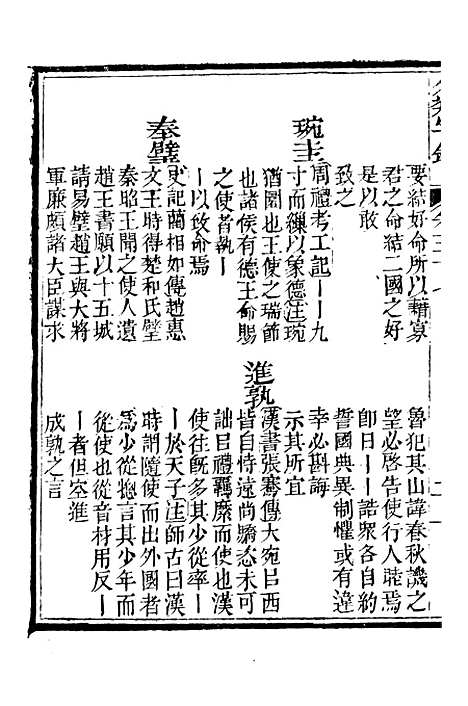 要結好命所以藉寡
君之命結二國之好
是以敢
致之
琬圭
周禮考工記｜｜九
寸而繅以象德注琬
猶圜也王使之瑞節
也諸侯有德王命賜
之使者執｜
｜以致命焉
奉璧
史記藺相如傳趙惠
文王時得楚和氏璧
秦昭王聞之使人遺
趙王書願以十五城
請易璧趙王與大將
軍廉頗諸大臣謀求
魯犯其山諱春秋譏之
望必啓告使行人睦焉
卽日｜｜誥衆各自約
誓國典異制懼或有違
幸必斟誨
示其所宜
進孰
漢書張騫傳大宛㠯西
皆自恃遠尚驕恣未可
詘㠯禮羈縻而使也漢
使往旣多其少從率｜
｜於天子注師古曰漢
時謂隨使而出外國者
爲少從摠言其少年而
從使也從音材用反｜
｜者但空進
成孰之言